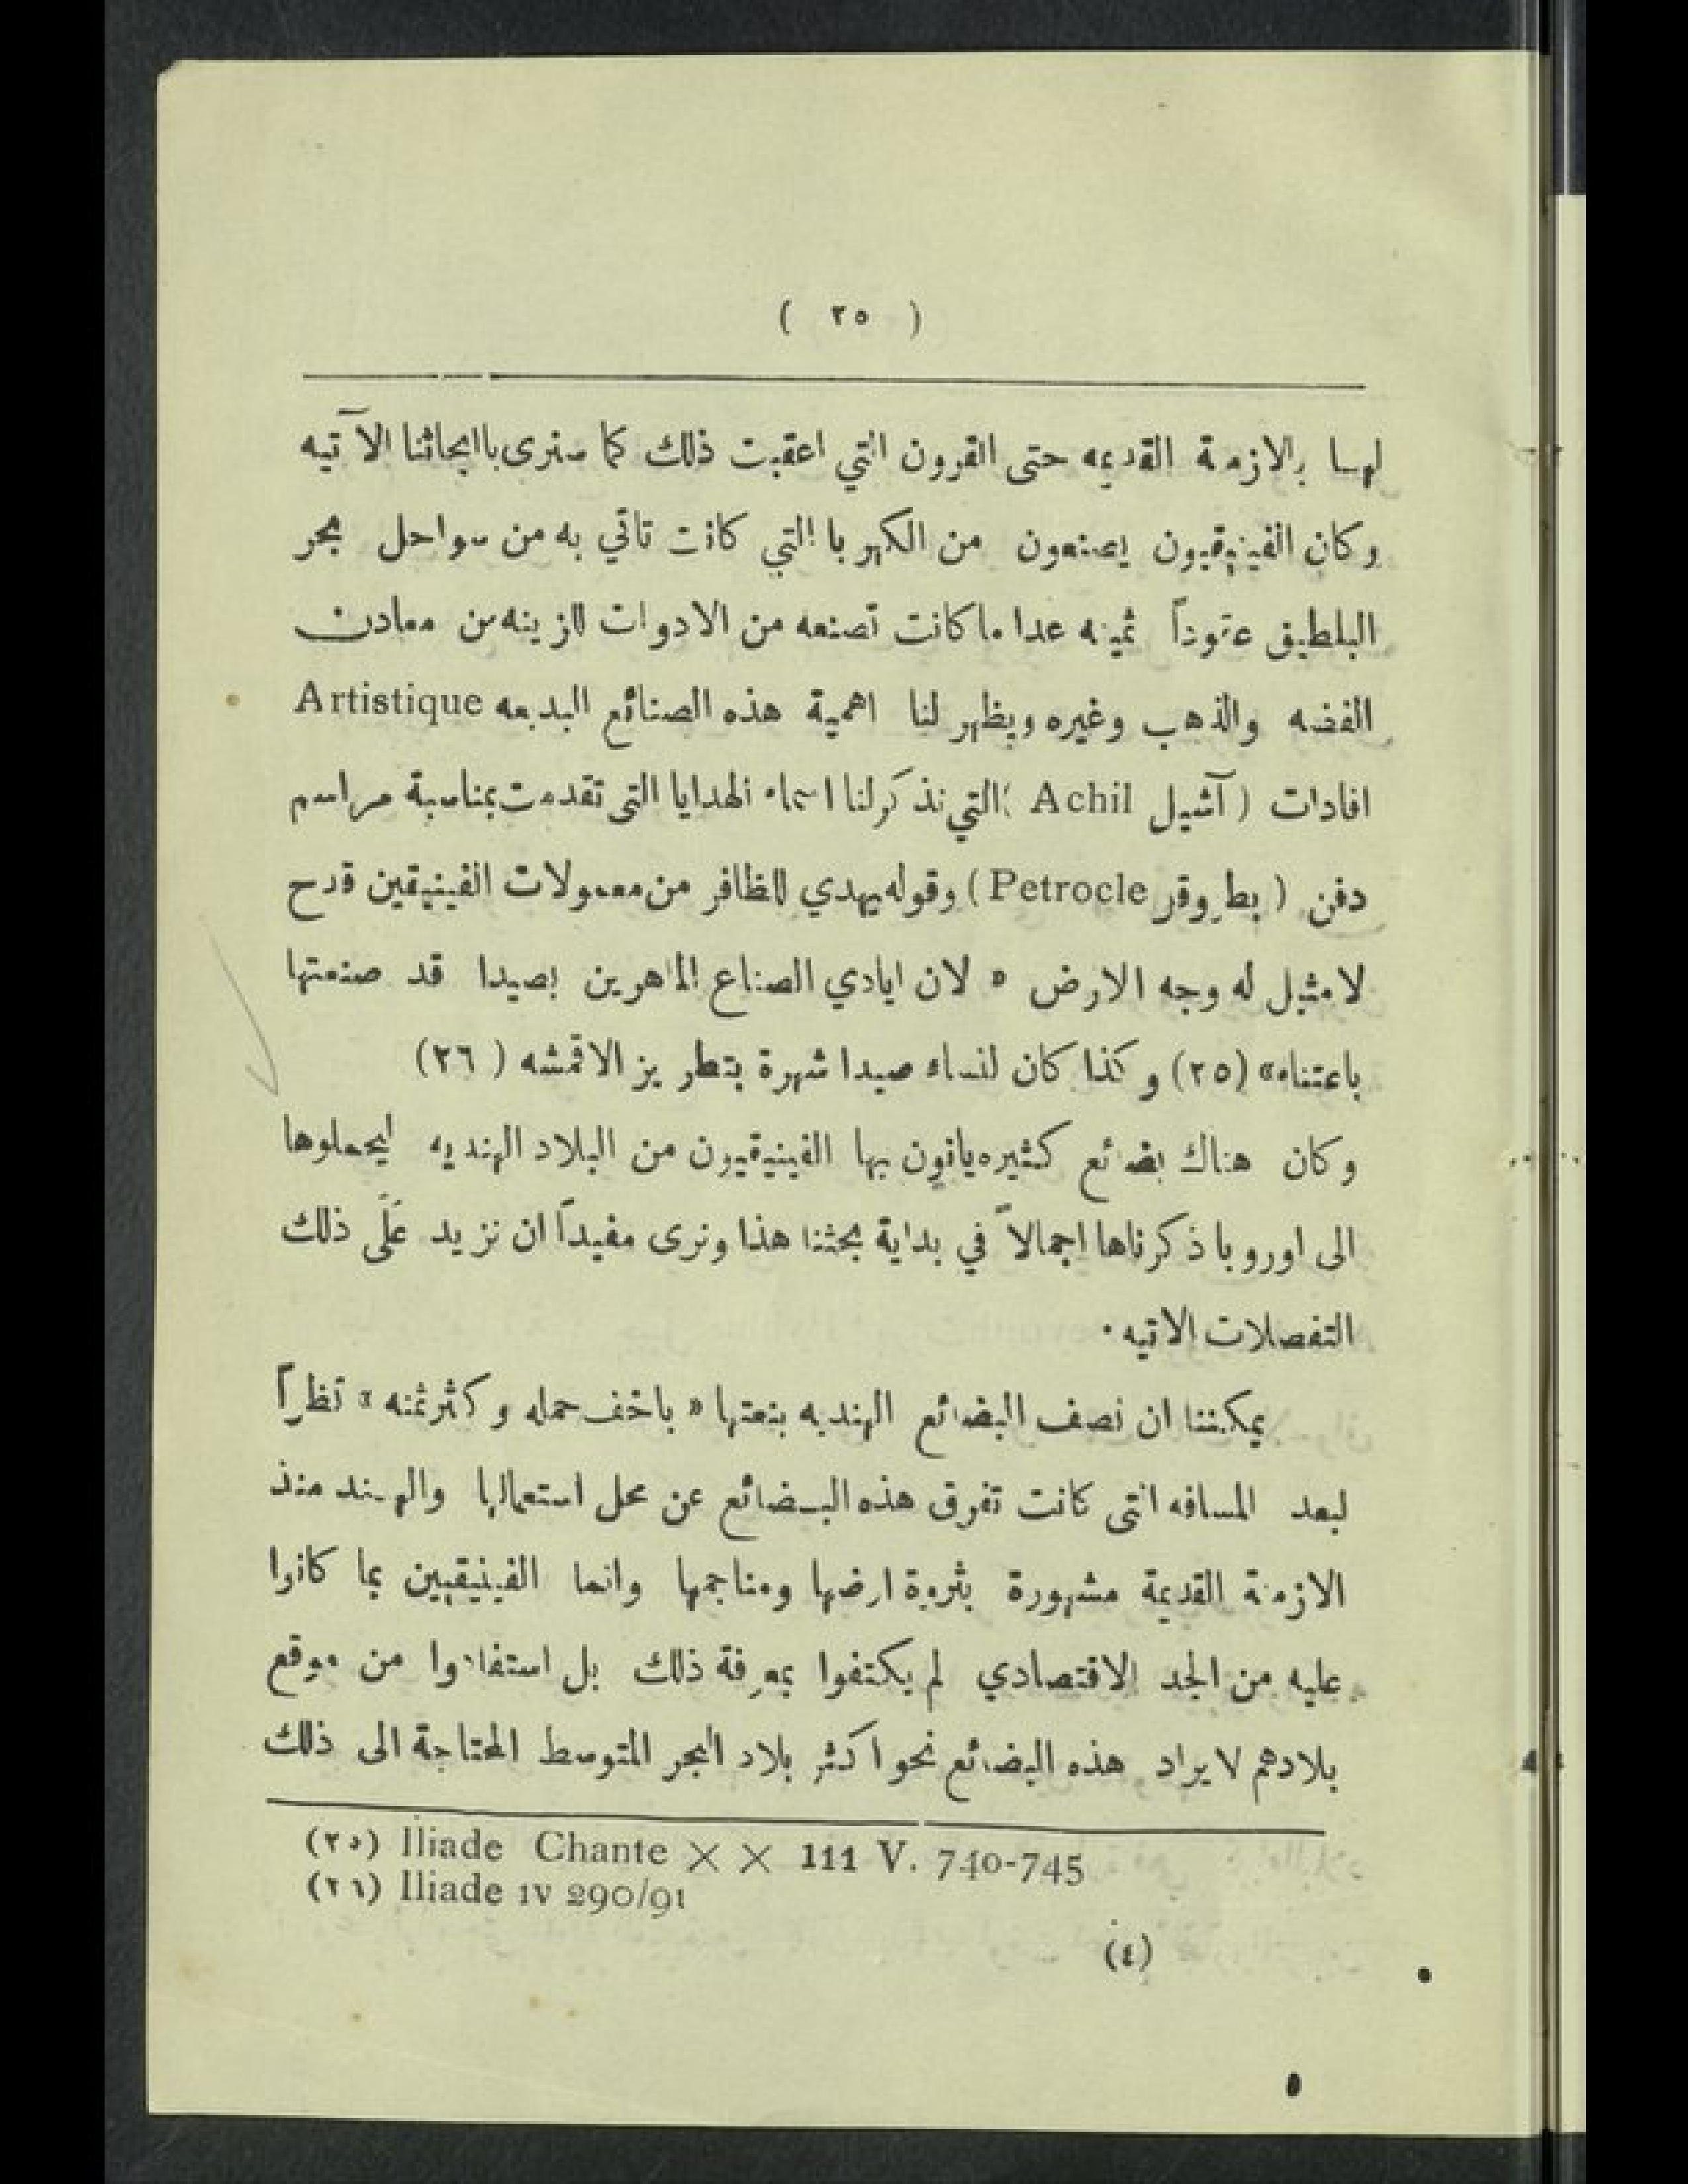 ( ٢٥ )
لها بالازمنة القديمه حتى القرون التي اعقبت ذلك كما سنرى باابحاثنا الآتيه
وكان الفينيقيون يصنعون من الكهربا التي كانت تاتي به من سواحل بحر
البلطيق عقوداً ثمينه عدا ما كانت تصنعه من الادوات للزينه من معادن
الفضه والذهب وغيره ويظهر لنا اهمية هذه الصنائع البديعه Artistique
افادات ( آشيل Achil ) التي نذكر لنا اسماء الهدايا التى تقدمت بمناسبة مراسم
دفن ( بطروقر Petrocle ) وقوله يهدي للظافر من معمولات الفينيقين قدح
لامثيل له وجه الارض « لان ايادي الصناع الماهرين بصيدا قد صنعتها
باعتناء» (٢٥) وكذا كان لنساء صيدا شهرة بتطريز الاقمشه ( ٢٦)
وكان هناك بضائع كثيره ياتون بها الفينيقيون من البلاد الهنديه ليحملوها
الى اوروبا ذكرناها اجمالاً في بداية بحثنا هذا ونرى مفيداً ان نزيد عَلَى ذلك
التفصلات الاتيه .
يمكننا ان نصف البضائع الهنديه بنعتها « باخف حمله وكثر ثمنه » نظراً
لبعد المسافه التى كانت تفرق هذه البضائع عن محل استعمالها والهند منذ
الازمنة القديمة مشهورة بثروة ارضها ومناجمها وانما الفينيقيين بما كانوا
عليه من الجد الاقتصادي لم يكتفوا بمعرفة ذلك بل استفادوا من موقع
بلادهم لايراد هذه البضائع نحو اكثر بلاد البحر المتوسط المحتاجة الى ذلك
(٢٥) Iliade Chante X X 111 V. 740-745
(٢٦) Iliade IV 290/91
(٤)